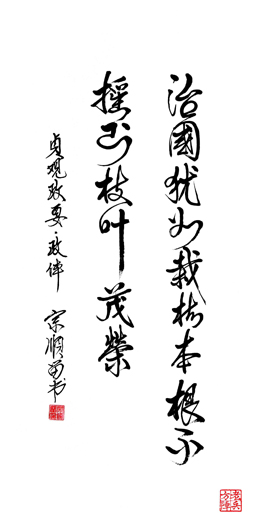 治國犹如栽树本根不
摇则枝叶茂榮
貞观政要·政体 宗顺书